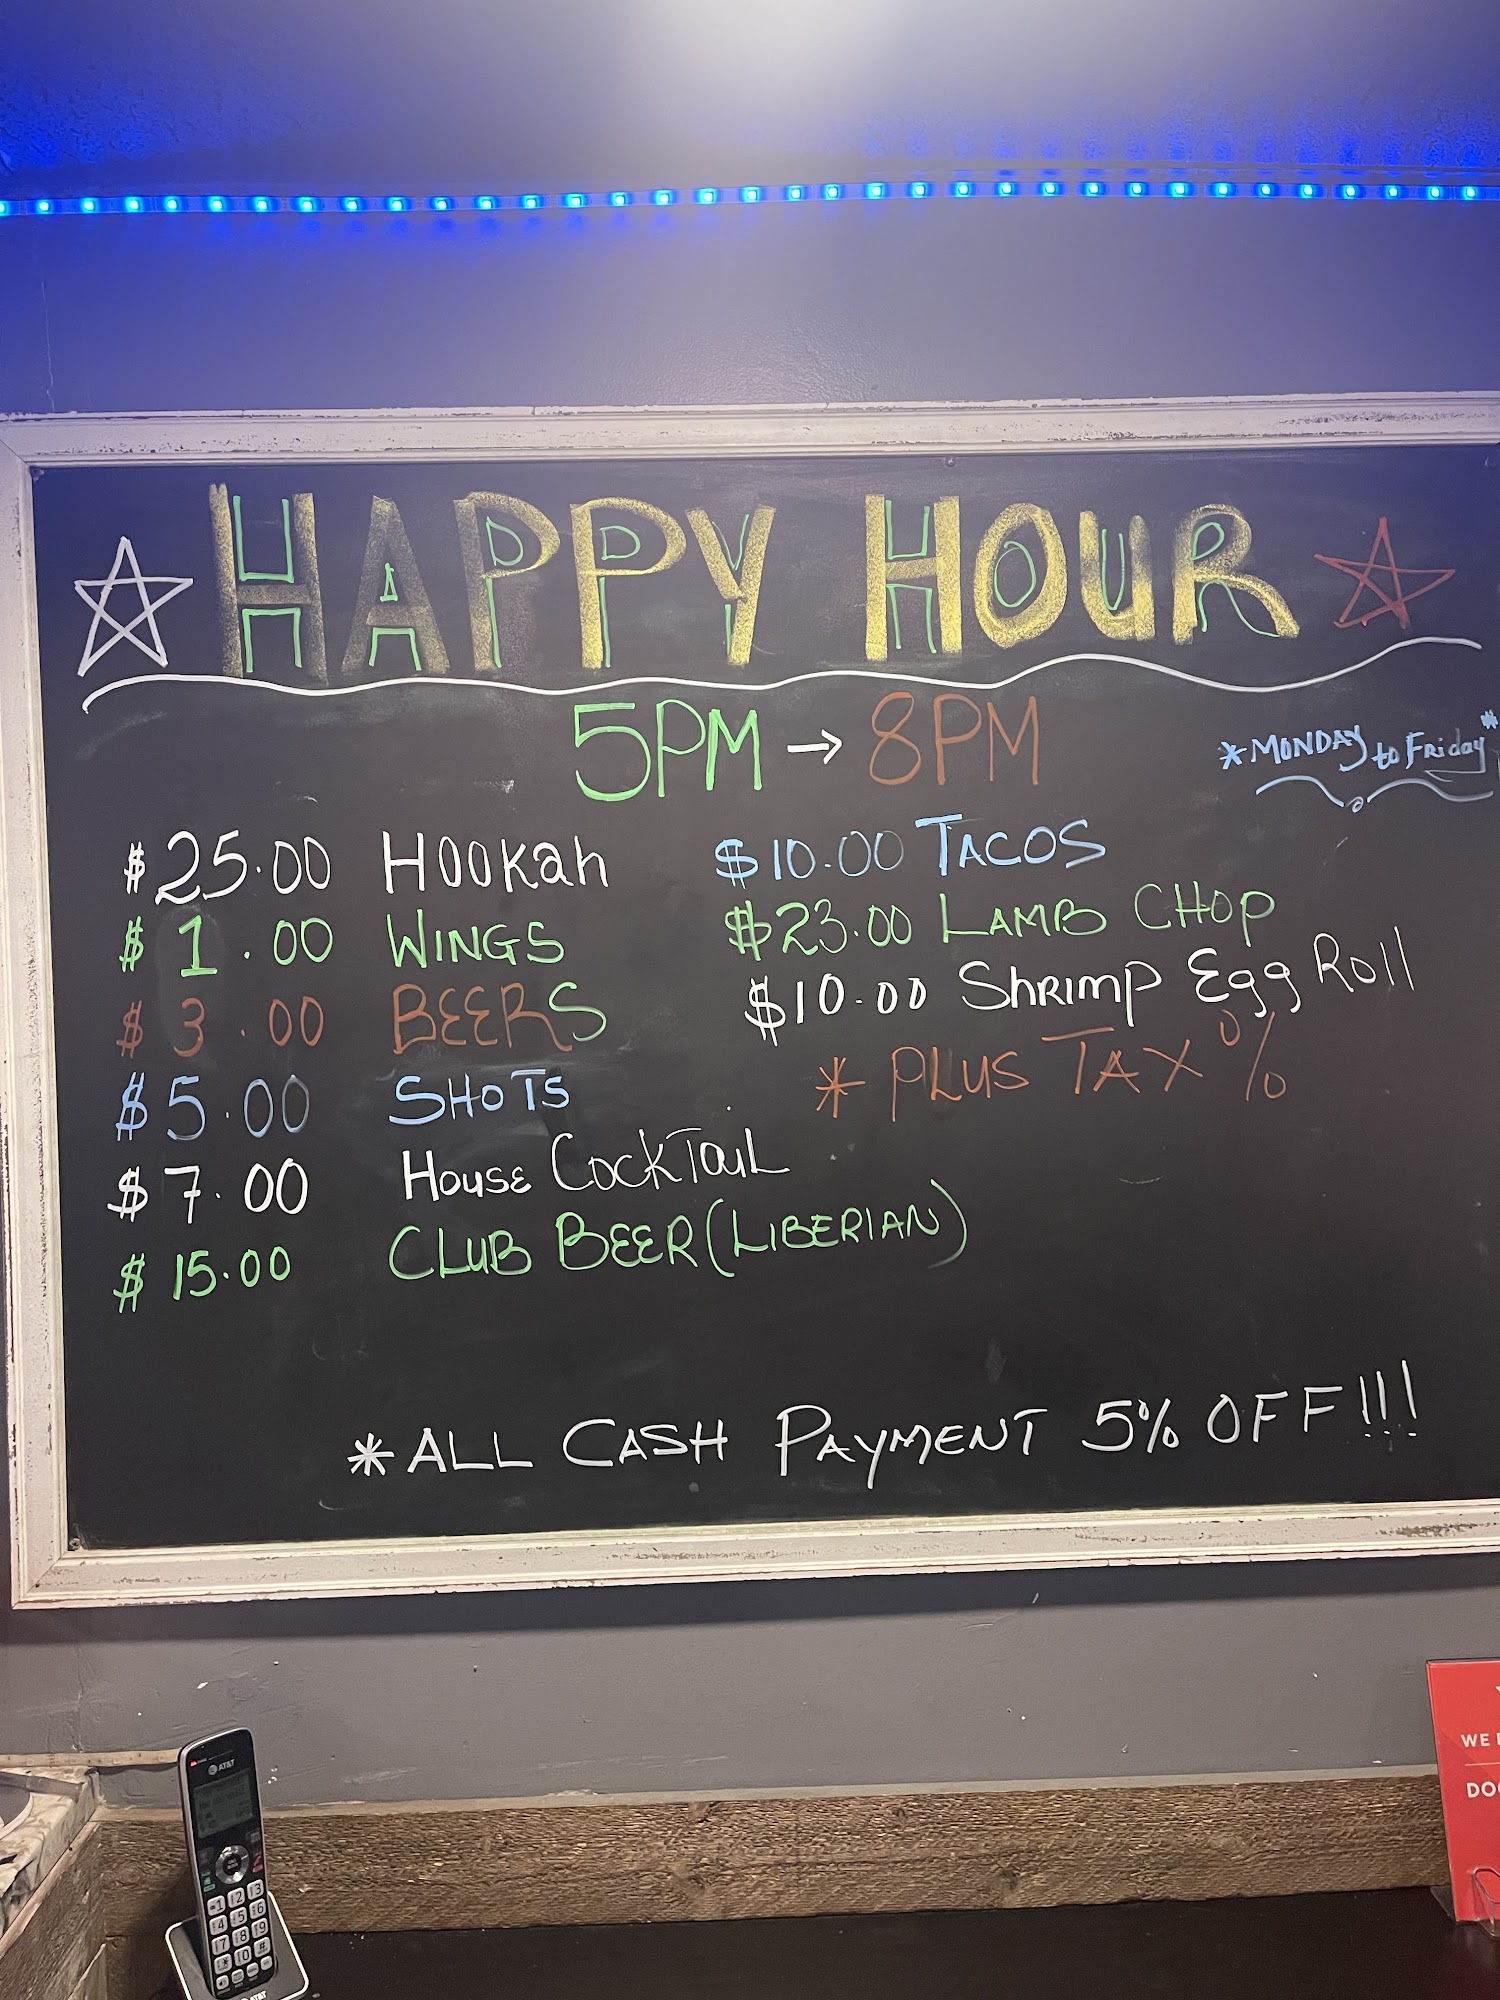 HAPPY HOUR
5PM → 8PM
*MONDAY to Friday*
$25.00 HOOKah
$1.00 WINGS
$3.00 BEERS
$5.00 SHOTS
$7.00 House COCKTaiL
$15.00 CLUB BEER (LIBERIAN)
$10.00 TACOS
$23.00 LAMB CHOP
$10.00 Shrimp Egg Roll
* PLUS TAX %
*ALL CASH PAYMENT 5% OFF!!!
AT&T
WE
DOO
1 2 3
4 5 6
7 8 9
* 0 #
AT&T